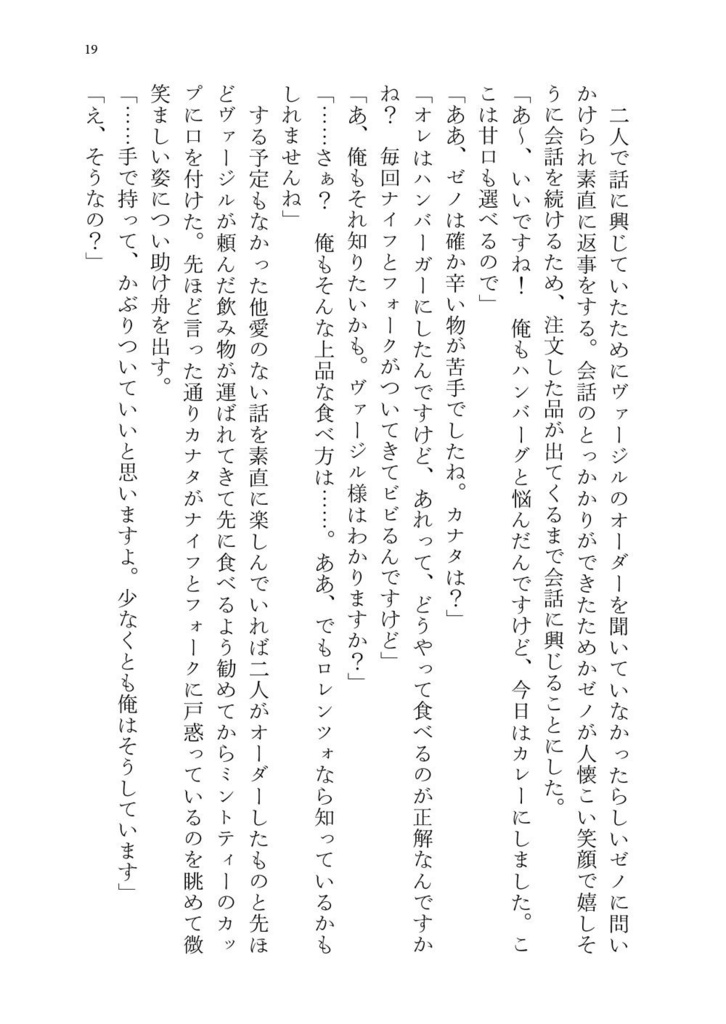 19
　二人で話に興じていたためにヴァージルのオーダーを聞いていなかったらしいゼノに問い
かけられ素直に返事をする。会話のとっかかりができたためかゼノが人懐こい笑顔で嬉しそ
うに会話を続けるため、注文した品が出てくるまで会話に興じることにした。
「あ〜、いいですね！　俺もハンバーグと悩んだんですけど、今日はカレーにしました。こ
こは甘口も選べるので」
「ああ、ゼノは確か辛い物が苦手でしたね。カナタは？」
「オレはハンバーガーにしたんですけど、あれって、どうやって食べるのが正解なんですか
ね？　毎回ナイフとフォークがついてきてビビるんですけど」
「あ、俺もそれ知りたいかも。ヴァージル様はわかりますか？」
「……さぁ？　俺もそんな上品な食べ方は……。ああ、でもロレンツォなら知っているかも
しれませんね」
　する予定もなかった他愛のない話を素直に楽しんでいれば二人がオーダーしたものと先ほ
どヴァージルが頼んだ飲み物が運ばれてきて先に食べるよう勧めてからミントティーのカッ
プに口を付けた。先ほど言った通りカナタがナイフとフォークに戸惑っているのを眺めて微
笑ましい姿につい助け舟を出す。
「……手で持って、かぶりついていいと思いますよ。少なくとも俺はそうしています」
「え、そうなの？」